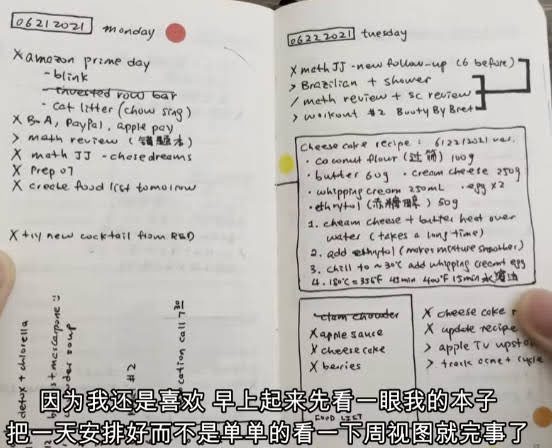 06212021 monday
X amazon prime day
- blink
- invested row bar
- cat litter (chow sing)
X BoA, PayPal, apple pay
> math review (错题本)
X math JJ - chasedreams
X Prep 07
X create food list tomorrow
X try new cocktail from RED
detox + chlorella
+ mascapone :)
chowder soup
#2
cation call 7:30
06222021 tuesday
X math JJ - new follow-up (6 before)
> Brazilian + shower
/ math review + sc review
> workout #2 Booty By Bret
Cheese cake recipe: 6/22/2021 ver.
· coconut flour (过筛) 100g
· butter 60g · cream cheese 250g
· whipping cream 250mL · egg x2
· ethrytol (赤藓糖醇) 50g
1. cheam cheese + butter heat over
water (takes a long time)
2. add ethrytol (makes mixture smoother)
3. chill to ~30°C add whipping cream egg
4. 180°C = 356F 45min 400°F 15min 水浴法
clam chowder
X apple sauce
X cheese cake
X berries
FOOD LIST
X cheese cake
X update recipe
> apple TV
> track acne + cycle
因为我还是喜欢 早上起来先看一眼我的本子
把一天安排好而不是单单的看一下周视图就完事了